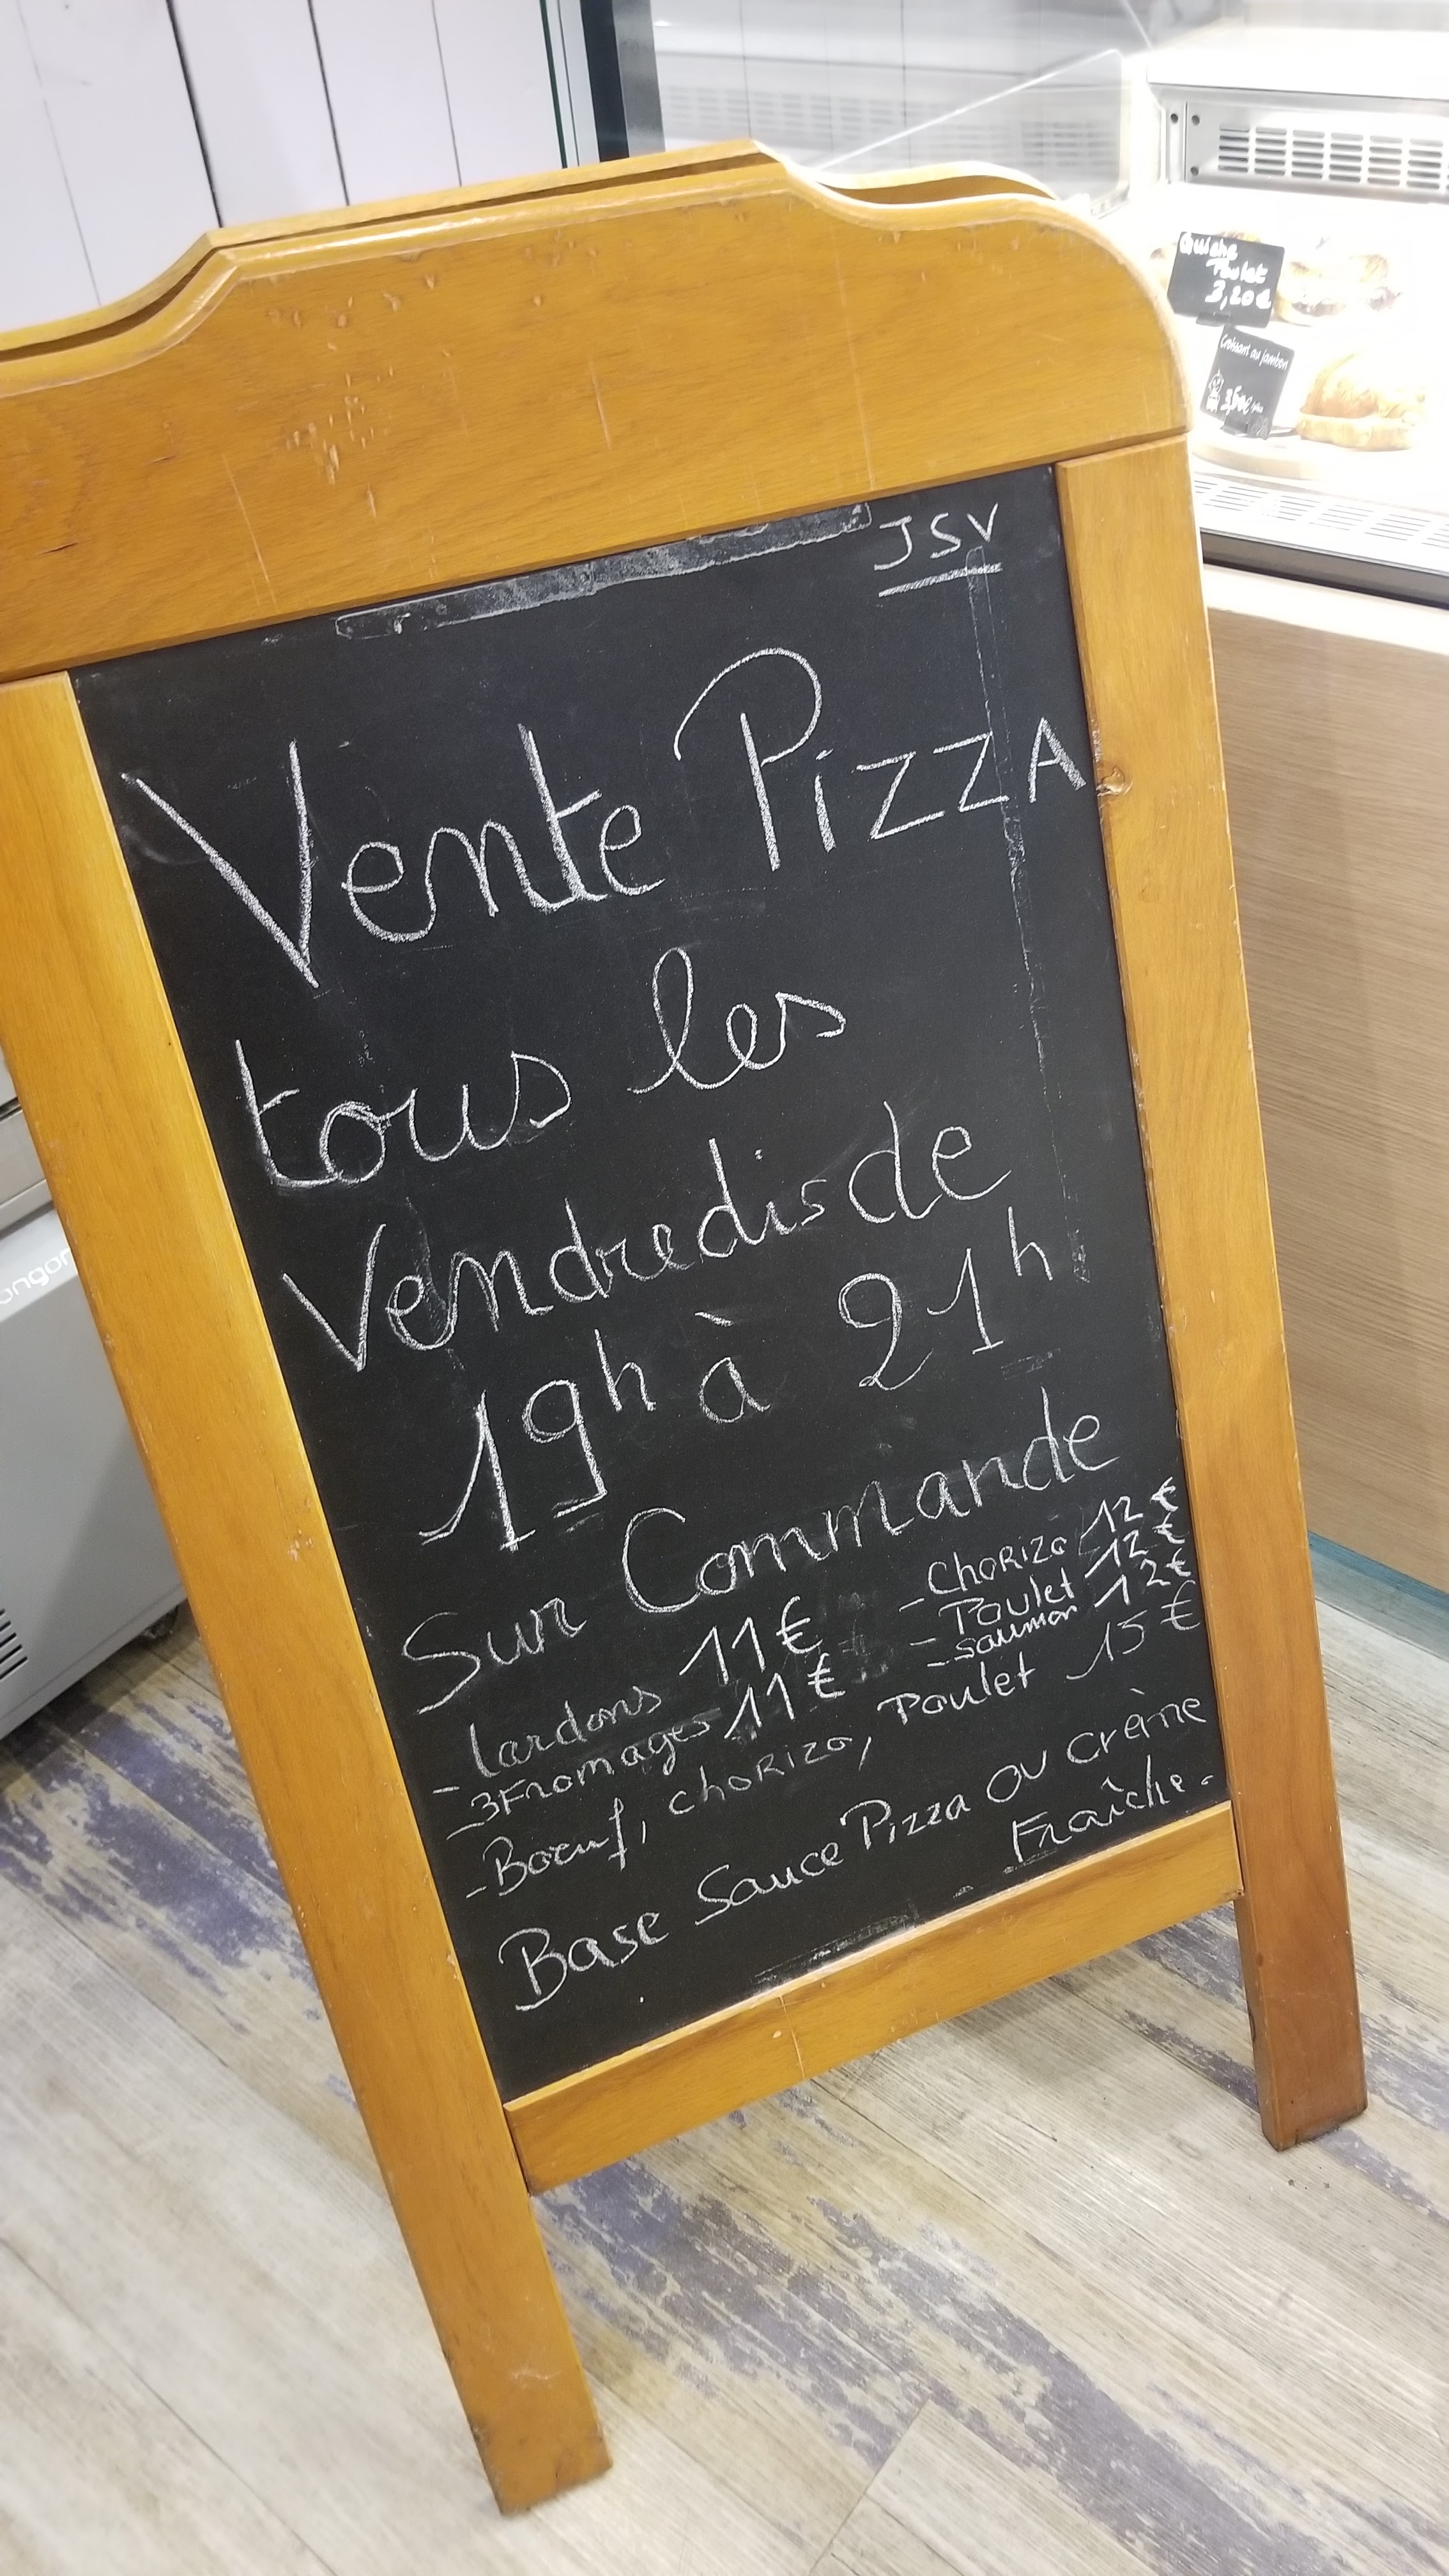 JSV
Vente PizzA
tous les
Vendredis de
19h à 21h
Sur Commande
- lardons 11€
- 3 Fromages 11€
- Chorizo 12€
- Poulet 12€
- saumon 12€
- Boeuf, chorizo, Poulet 15€
Base Sauce Pizza ou crème
Fraîche.
Quiche
Poulet
3,20€
Croissant au jambon